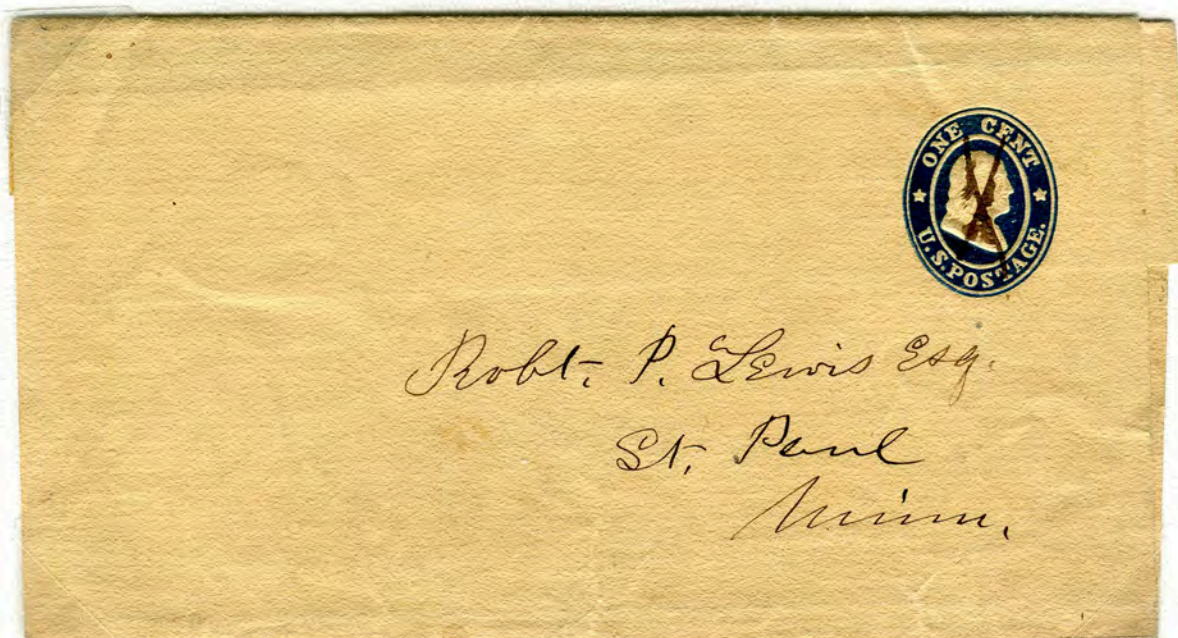 ONE CENT
U.S. POSTAGE.
Robt. P. Lewis Esq.
St. Paul
Minn.